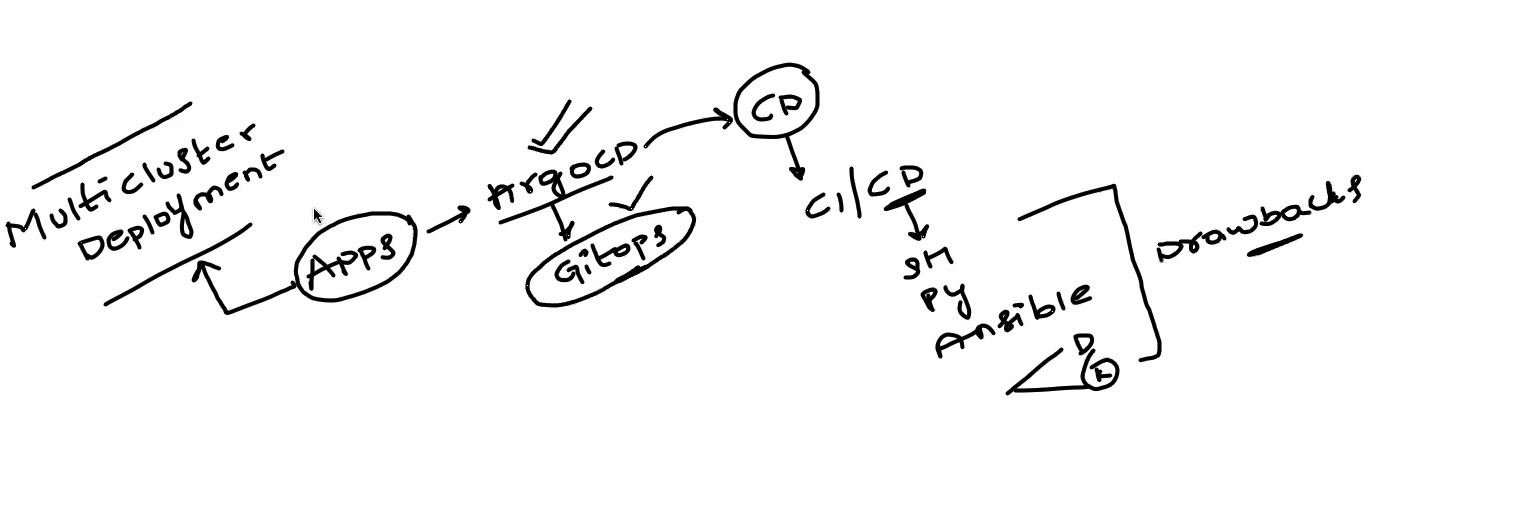 Multicluster
Deployment
Apps
ArgoCD
Gitops
CD
CI/CD
SH
PY
Ansible
D
K
Drawbacks